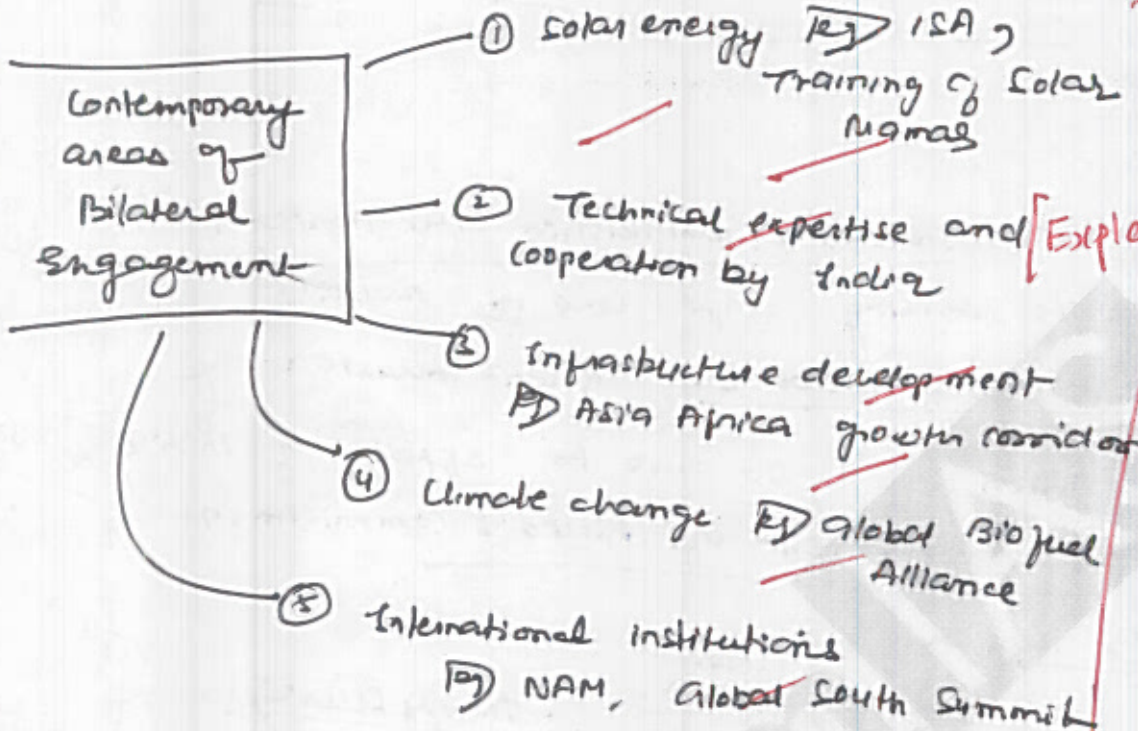 Contemporary
areas of
Bilateral
Engagement
① Solar energy Eg ISA,
Training of Solar
Mamas
② Technical expertise and [Expla
Cooperation by India
③ Infrastructure development
Eg Asia Africa growth corridor
④ Climate change Eg Global Biofuel
Alliance
⑤ International institutions
Eg NAM, Global South Summit